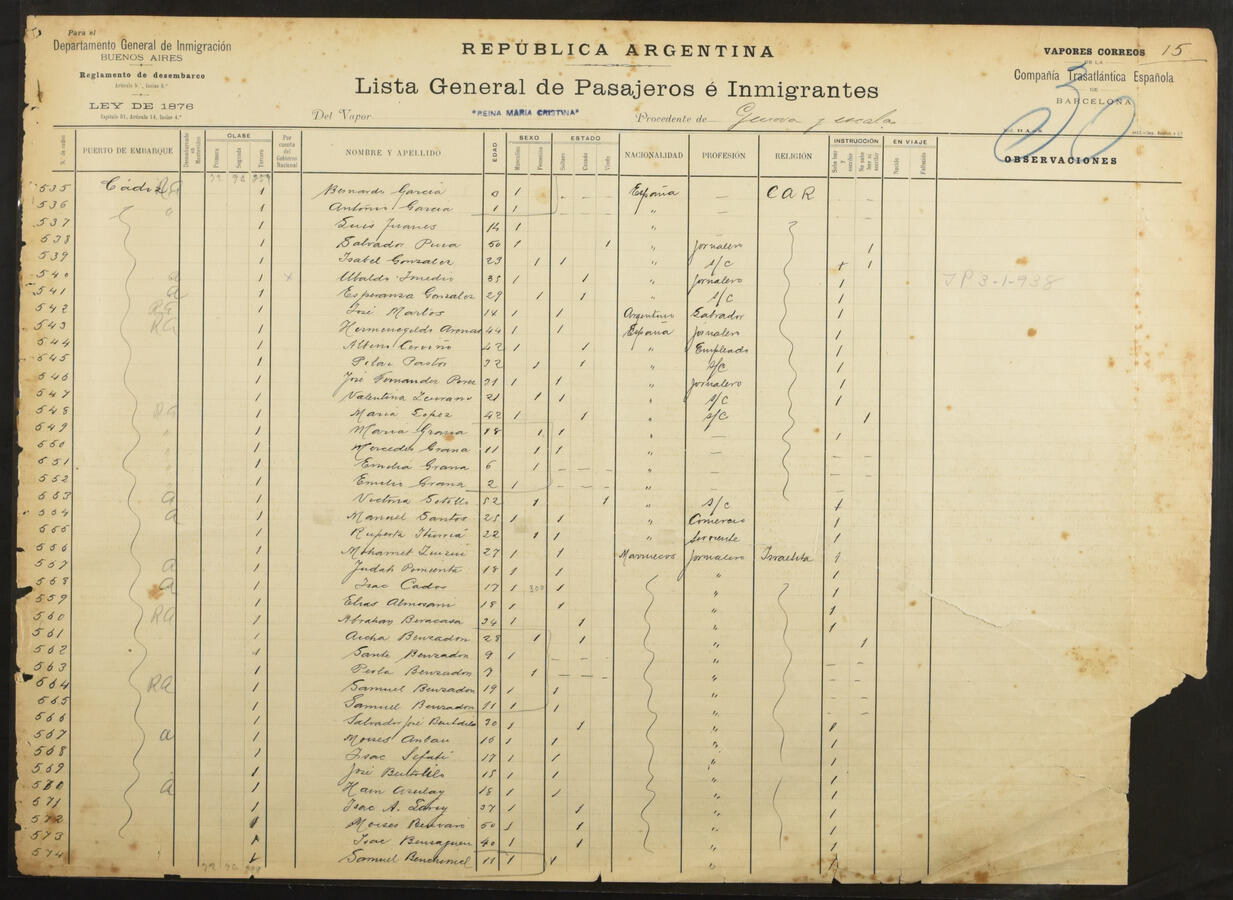 Para el
Departamento General de Inmigración
BUENOS AIRES
Reglamento de desembarco
Artículo 9.º, Inciso 8.º
LEY DE 1876
Capítulo 51, Artículo 14, Inciso 4.º
REPÚBLICA ARGENTINA
Lista General de Pasajeros é Inmigrantes
Del Vapor "REINA MARIA CRISTINA" Procedente de Genova y escala
VAPORES CORREOS 15
DE LA
Compañía Trasatlántica Española
DE
BARCELONA
30
N.º de orden PUERTO DE EMBARQUE Desembarcado en Montevideo CLASE Primera Segunda Tercera Por cuenta del Gobierno Nacional NOMBRE Y APELLIDO EDAD SEXO Masculino Femenino ESTADO Soltero Casado Viudo NACIONALIDAD PROFESIÓN RELIGIÓN INSTRUCCIÓN Sabe leer y escribir No sabe leer ni escribir EN VIAJE Nacido Fallecido OBSERVACIONES
535 Cádiz 1 Bernardo García 1 España — C A R
536 1 Antonio Garcia 1 1 " —
537 1 Luis Juanes 14 1 "
538 1 Salvador 50 1 1 " Jornalero 1
539 1 Isabel Gonzalez 23 1 1 " s/c 1
540 1 Ubaldo 35 1 1 " Jornalero 1 JP 3-1-938
541 a 1 Esperanza Gonzalez 29 1 1 " s/c 1
542 RA 1 José Martos 14 1 1 Argentino Labrador 1
543 RA 1 Hermenegildo Arenas 44 1 1 España Jornalero 1
544 1 Cerviño 42 1 1 " Empleado 1
545 1 Pilar Pastor 32 1 1 " s/c 1
546 1 José Fernandez Perez 31 1 1 " Jornalero 1
547 1 Valentina 21 1 1 " s/c 1
548 RA 1 María Lopez 42 1 1 " s/c 1
549 1 Maria Grana 18 1 1 " — 1
550 1 Mercedes Grana 11 1 1 " —
551 1 Emilia Grana 6 1 "
552 1 Emilio Grana 2 1 "
553 a 1 Victoria 52 1 1 s/c 1
554 a 1 Manuel Santos 25 1 1 " Comercio 1
555 1 Ruperta 22 1 1 " Sirviente 1
556 1 Mohamet 27 1 1 Marruecos Jornalero Israelita 1
557 a 1 Judah Pimienta 18 1 1 " 1
558 a 1 Isac 17 1 1 " 1
559 1 Elias Almosni 18 1 1 " 1
560 RA 1 Abrahan Beracasa 34 1 1 " 1
561 1 Aicha Benzadon 28 1 1 " 1
562 1 Benzadon 9 1 "
563 1 Perla Benzadon 7 1 "
564 RA 1 Samuel Benzadon 19 1 1 "
565 1 Samuel Benzadon 11 1 1 "
566 1 Salvador José 30 1 1 " 1
567 a 1 Moises 16 1 1 " 1
568 1 Isac 17 1 1 " 1
569 1 José 15 1 1 " 1
570 a 1 Azulay 18 1 1 " 1
571 1 Isac A. 37 1 1 " 1
572 1 Moises 50 1 1 " 1
573 1 Isac 40 1 1 " 1
574 1 Samuel 11 1 1 " 1